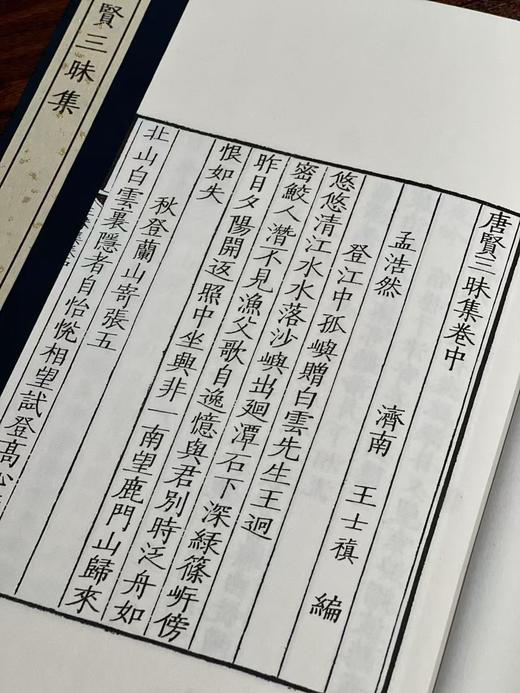 賢三昧集
唐賢三昧集卷中
濟南 王士禛 編
孟浩然
登江中孤嶼贈白雲先生王迥
悠悠清江水水落沙嶼出廻潭石下深綠篠岍傍
密鮫人潛不見漁父歌自逸憶與君別時泛舟如
昨日夕陽開返照中坐興非一南望鹿門山歸來
恨如失
秋登蘭山寄張五
北山白雲裏隱者自怡悅相望試登高心